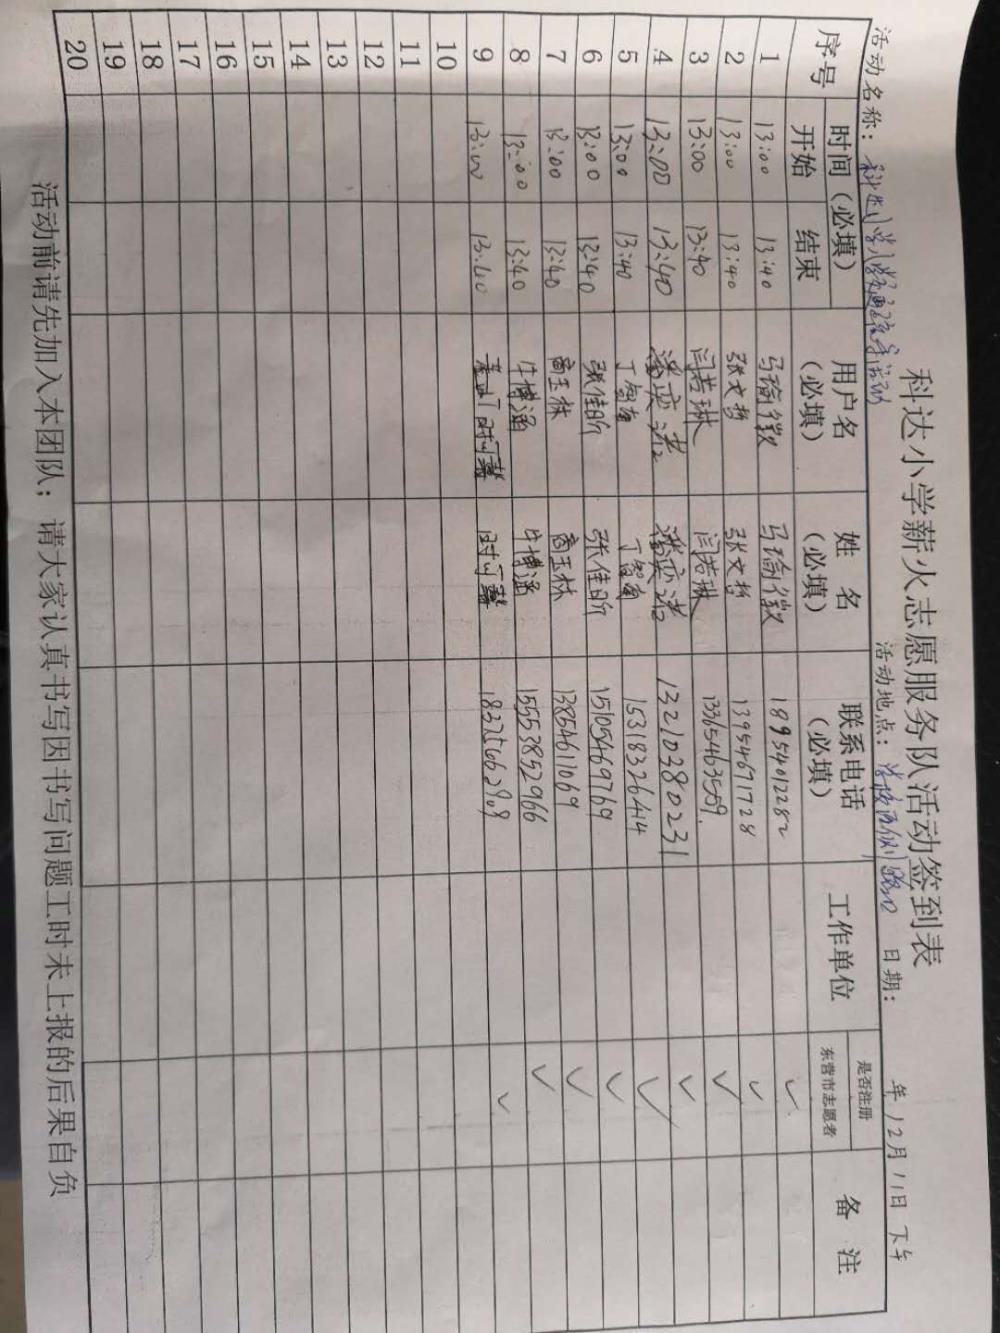 科达小学薪火志愿服务队活动签到表
活动名称: 科达小学 活动地点: 学校西侧路口 日期: 年 12月 11日 下午
序号 时间(必填) 用户名(必填) 姓 名(必填) 联系电话(必填) 工作单位 是否注册东营市志愿者 备 注
开始 结束
1 13:00 13:40 马瑜徽 马瑜徽 18954012282 ✓
2 13:00 13:40 张文哲 张文哲 13954671728 ✓
3 13:00 13:40 闫若琳 闫若琳 13365463559. ✓
4 13:00 13:40 潘奕诺 潘奕诺 13210380231 ✓
5 13:00 13:40 丁智 丁智 15318326414 ✓
6 13:00 13:40 张佳昕 张佳昕 15105469769 ✓
7 13:00 13:40 商玉林 商玉林 13854611069 ✓
8 13:00 13:40 牛博涵 牛博涵 15553852966 ✓
9 13:00 13:40 18325662909 ✓
10
11
12
13
14
15
16
17
18
19
20
活动前请先加入本团队; 请大家认真书写因书写问题工时未上报的后果自负